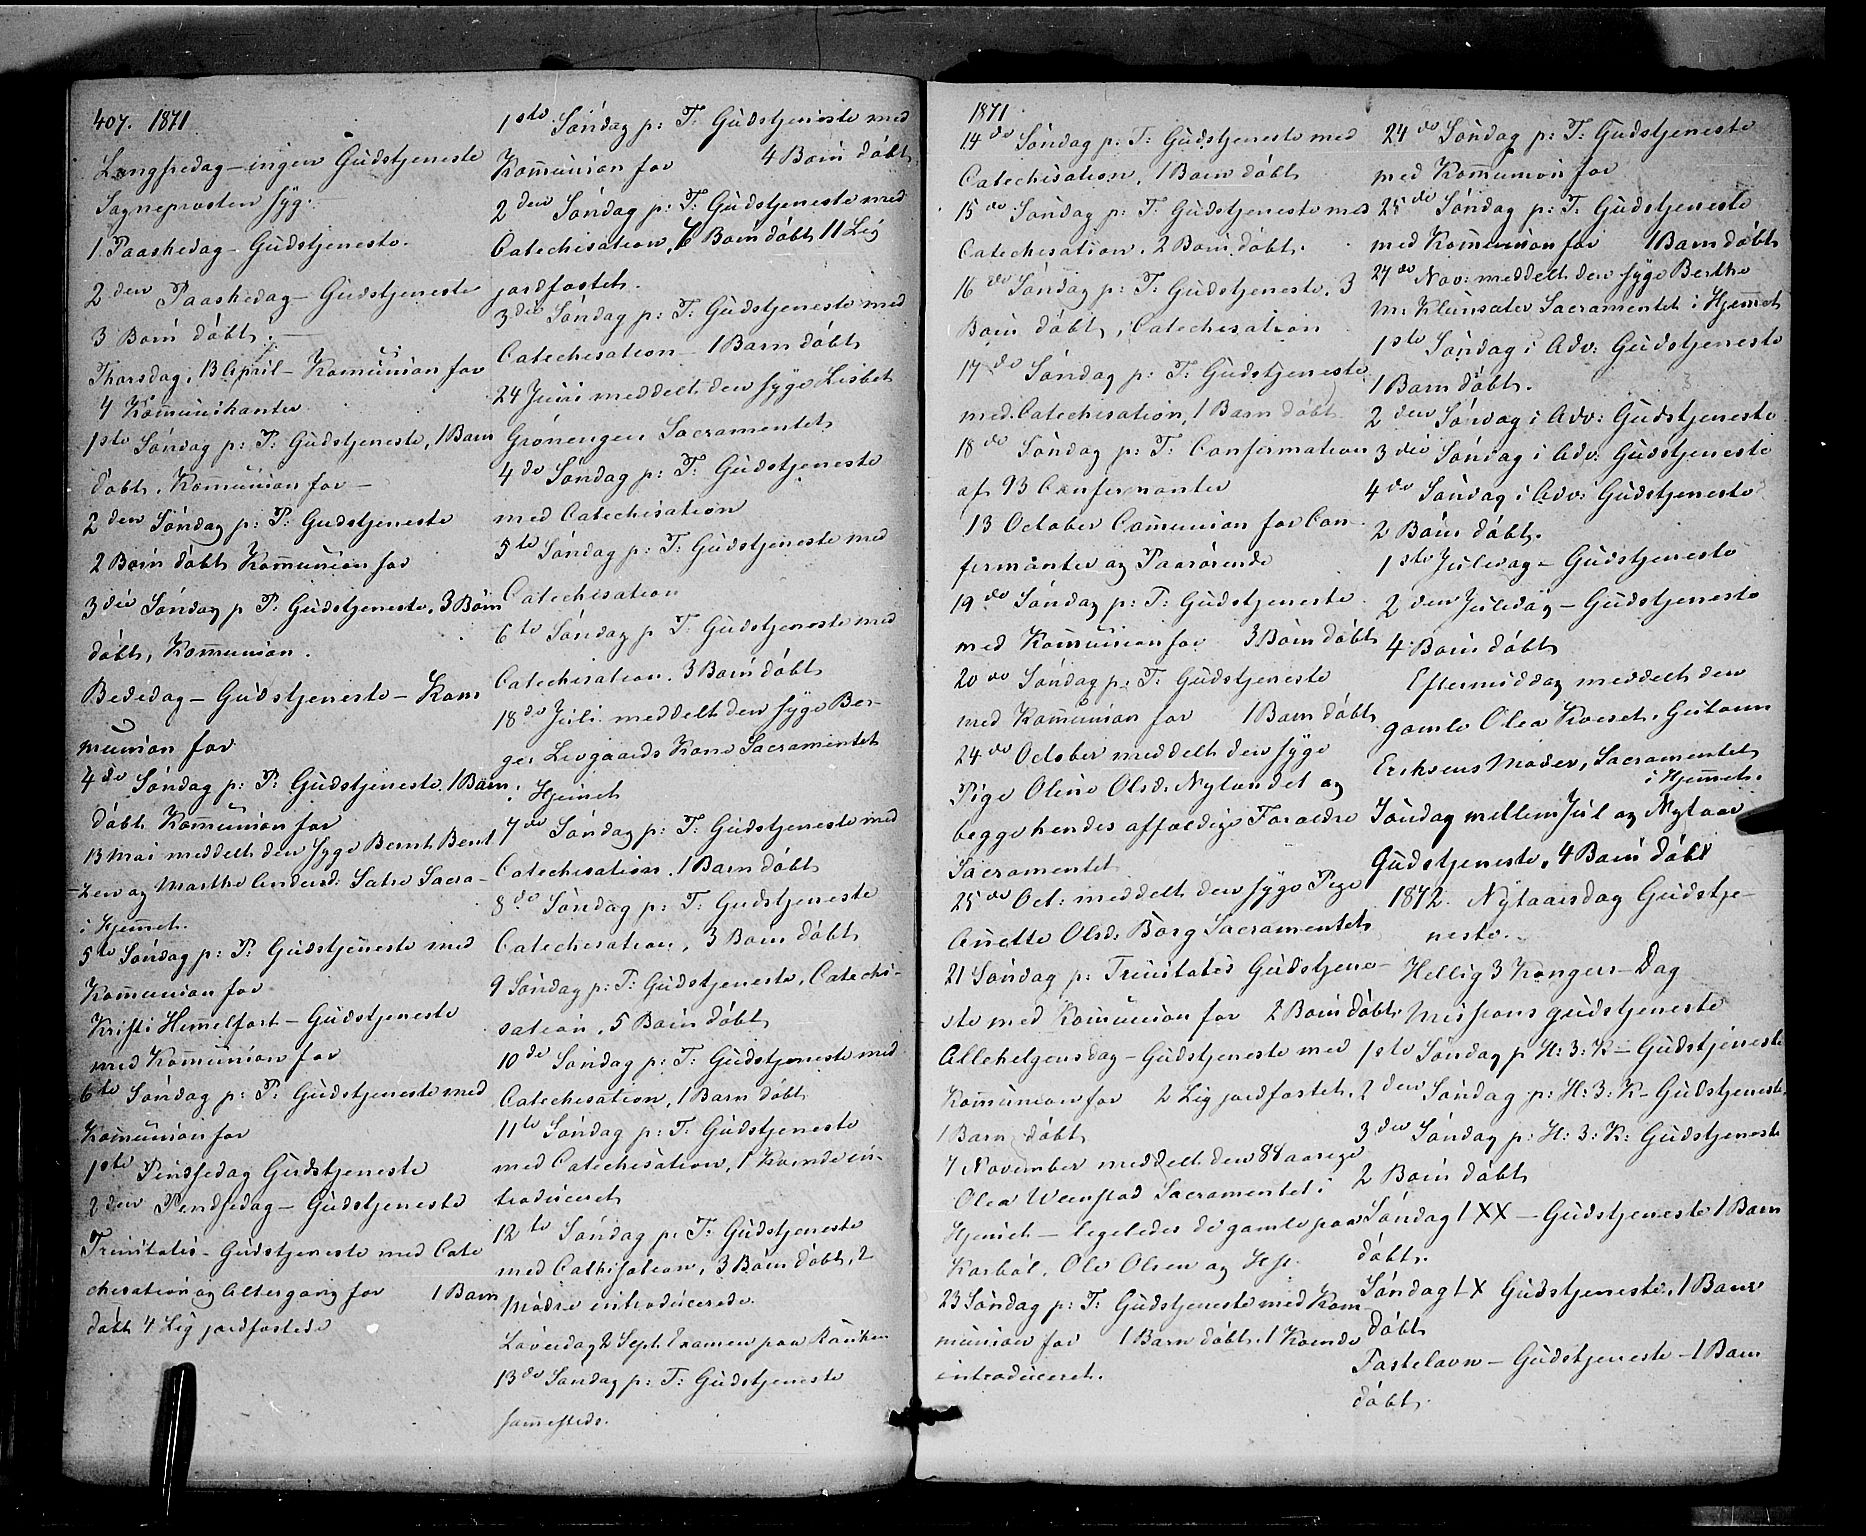 407. 1871
Langfredag - ingen Gudstjeneste
Sognepræsten syg. -
1. Paaskedag - Gudstjeneste.
2den Paaskedag - Gudstjeneste
3 Børn døbt. -
Thorsdag, 13 April - Kommunion for
4 Kommunikanter
1ste Søndag p: P: Gudstjeneste, 1 Barn
døbt. Kommunion for -
2den Søndag p: P: Gudstjeneste
2 Børn døbt Kommunion for
3die Søndag p P: Gudstjeneste, 3 Børn
døbt, Kommunion.
Bededag - Gudstjeneste - Kom
munion for
4de Søndag p: P: Gudstjeneste, 1 Barn
døbt. Kommunion for
13 Mai meddelt den syge Bernt Bent
-zen og Marthe Andersd: Sætre Sacra-
i Hjemmet.
5te Søndag p: P: Gudstjeneste med
Kommunion for
Kristi Himmelfart - Gudstjeneste
med Kommunion for
6te Søndag p: P: Gudstjeneste med
Kommunion for
1ste Pindsedag Gudstjeneste
2den Pindsedag - Gudstjeneste
Trinitatis - Gudstjeneste med Cate
chisation og Altergang for 1 Barn
døbt 4 Lig jordfæstede
1ste Søndag p: T: Gudstjeneste med
Kommunion for 4 Børn døbt
2den Søndag p: T: Gudstjeneste med
Catechisation, 6 Børn døbt, 11 Lig
jordfæstet.
3die Søndag p: T: Gudstjeneste med
Catechisation - 1 Barn døbt
24 Juni meddelt den syge Lisbet
Grønengen Sacramentet
4de Søndag p: T: Gudstjeneste
med Catechisation
5te Søndag p: T: Gudstjeneste med
Catechisation
6te Søndag p T: Gudstjeneste med
Catechisation. 3 Børn døbt
18de Juli meddelt den syge Ber-
ger Levgaards Kone Sacramentet
i Hjemet
7de Søndag p: T: Gudstjeneste med
Catechisation, 1 Barn døbt
8de Søndag p: T: Gudstjeneste
Catechisation, 3 Børn døbt
9 Søndag p: T: Gudstjeneste, Catechi-
sation, 5 Børn døbt,
10de Søndag p: T: Gudstjeneste med
Catechisation, 1 Barn døbt
11te Søndag p: T: Gudstjeneste
med Catechisation, 1 Kvinde in-
troduceret
12te Søndag p: T: Gudstjeneste
med Cathisation, 3 Børn døbt, 2
Mødre introducerede.
Løverdag 2 Sept. Examen paa
13de Søndag p: T: Gudstjeneste
sammesteds.
1871
14de Søndag p: T: Gudstjeneste med
Catechisation, 1 Barn døbt
15de Søndag p: T: Gudstjeneste med
Catechisation, 2 Børn døbt.
16de Søndag p: T: Gudstjeneste, 3
Børn døbt, Catechisation
17de Søndag p: T: Gudstjeneste
med Catechisation, 1 Barn døbt
18de Søndag p: T: Confirmation
af 93 Confirmanter
13 October Communion for Con-
firmanter og Paarørende
19de Søndag p: T: Gudstjeneste
med Kommunion for 3 Børn døbt
20de Søndag p: T: Gudstjeneste
med Kommunion for 1 Barn døbt
24de October meddelt den syge
Pige Oline Olsd. Nylændet og
begge hendes affældige Forældre
Sacramentet
25de Oct: meddelt den syge Pige
Anette Olsd: Borg Sacramentet,
21 Søndag p: Trinitatis Gudstjene-
ste med Kommunion for 2 Børn døbt,
Allehelgensdag - Gudstjeneste med
Kommunion for 2 Lig jordfæstet.
1 Barn døbt
7 November meddelt den 88 aarige
Olea Weenstad Sacramentet i
Hjemet - legeledes de gamle paa
Karbøl, Ole Olsen og H.
23 Søndag p: T: Gudstjeneste med Kom-
munion for 1 Barn døbt, 1 Kvinde
introduceret.
24de Søndag p: T: Gudstjeneste
med Kommunion for
25de Søndag p: T: Gudstjeneste
med Kommunion for 1 Barn døbt
27de Nov: meddelt den syge Berthe
M. Sacramentet i Hjemet
1ste Søndag i Adv: Gudstjeneste
1 Barn døbt.
2den Søndag i Adv: Gudstjeneste
3die Søndag i Adv: Gudstjeneste
4de Søndag i Adv: Gudstjeneste
2 Børn døbt.
1ste Juledag - Gudstjeneste
2den Juledag - Gudstjeneste
4 Børn døbt
Eftermiddag meddelt den
gamle Olea
Eriksens Moder, Sacramentet
i Hjemet.
Søndag mellem Jul og Nytaar
Gudstjeneste, 4 Børn døbt
1872. Nytaarsdag Gudstje-
neste.
Hellig 3 Kongers - Dag
Missions gudstjeneste
1ste Søndag p H: 3: K - Gudstjeneste
2den Søndag p: H: 3: K - Gudstjeneste,
3die Søndag p: H: 3: K: Gudstjeneste
2 Børn døbt
Søndag LXX - Gudstjeneste 1 Barn
døbt.
Søndag LX Gudstjeneste, 1 Barn
døbt
Fastelavn - Gudstjeneste - 1 Barn
døbt.